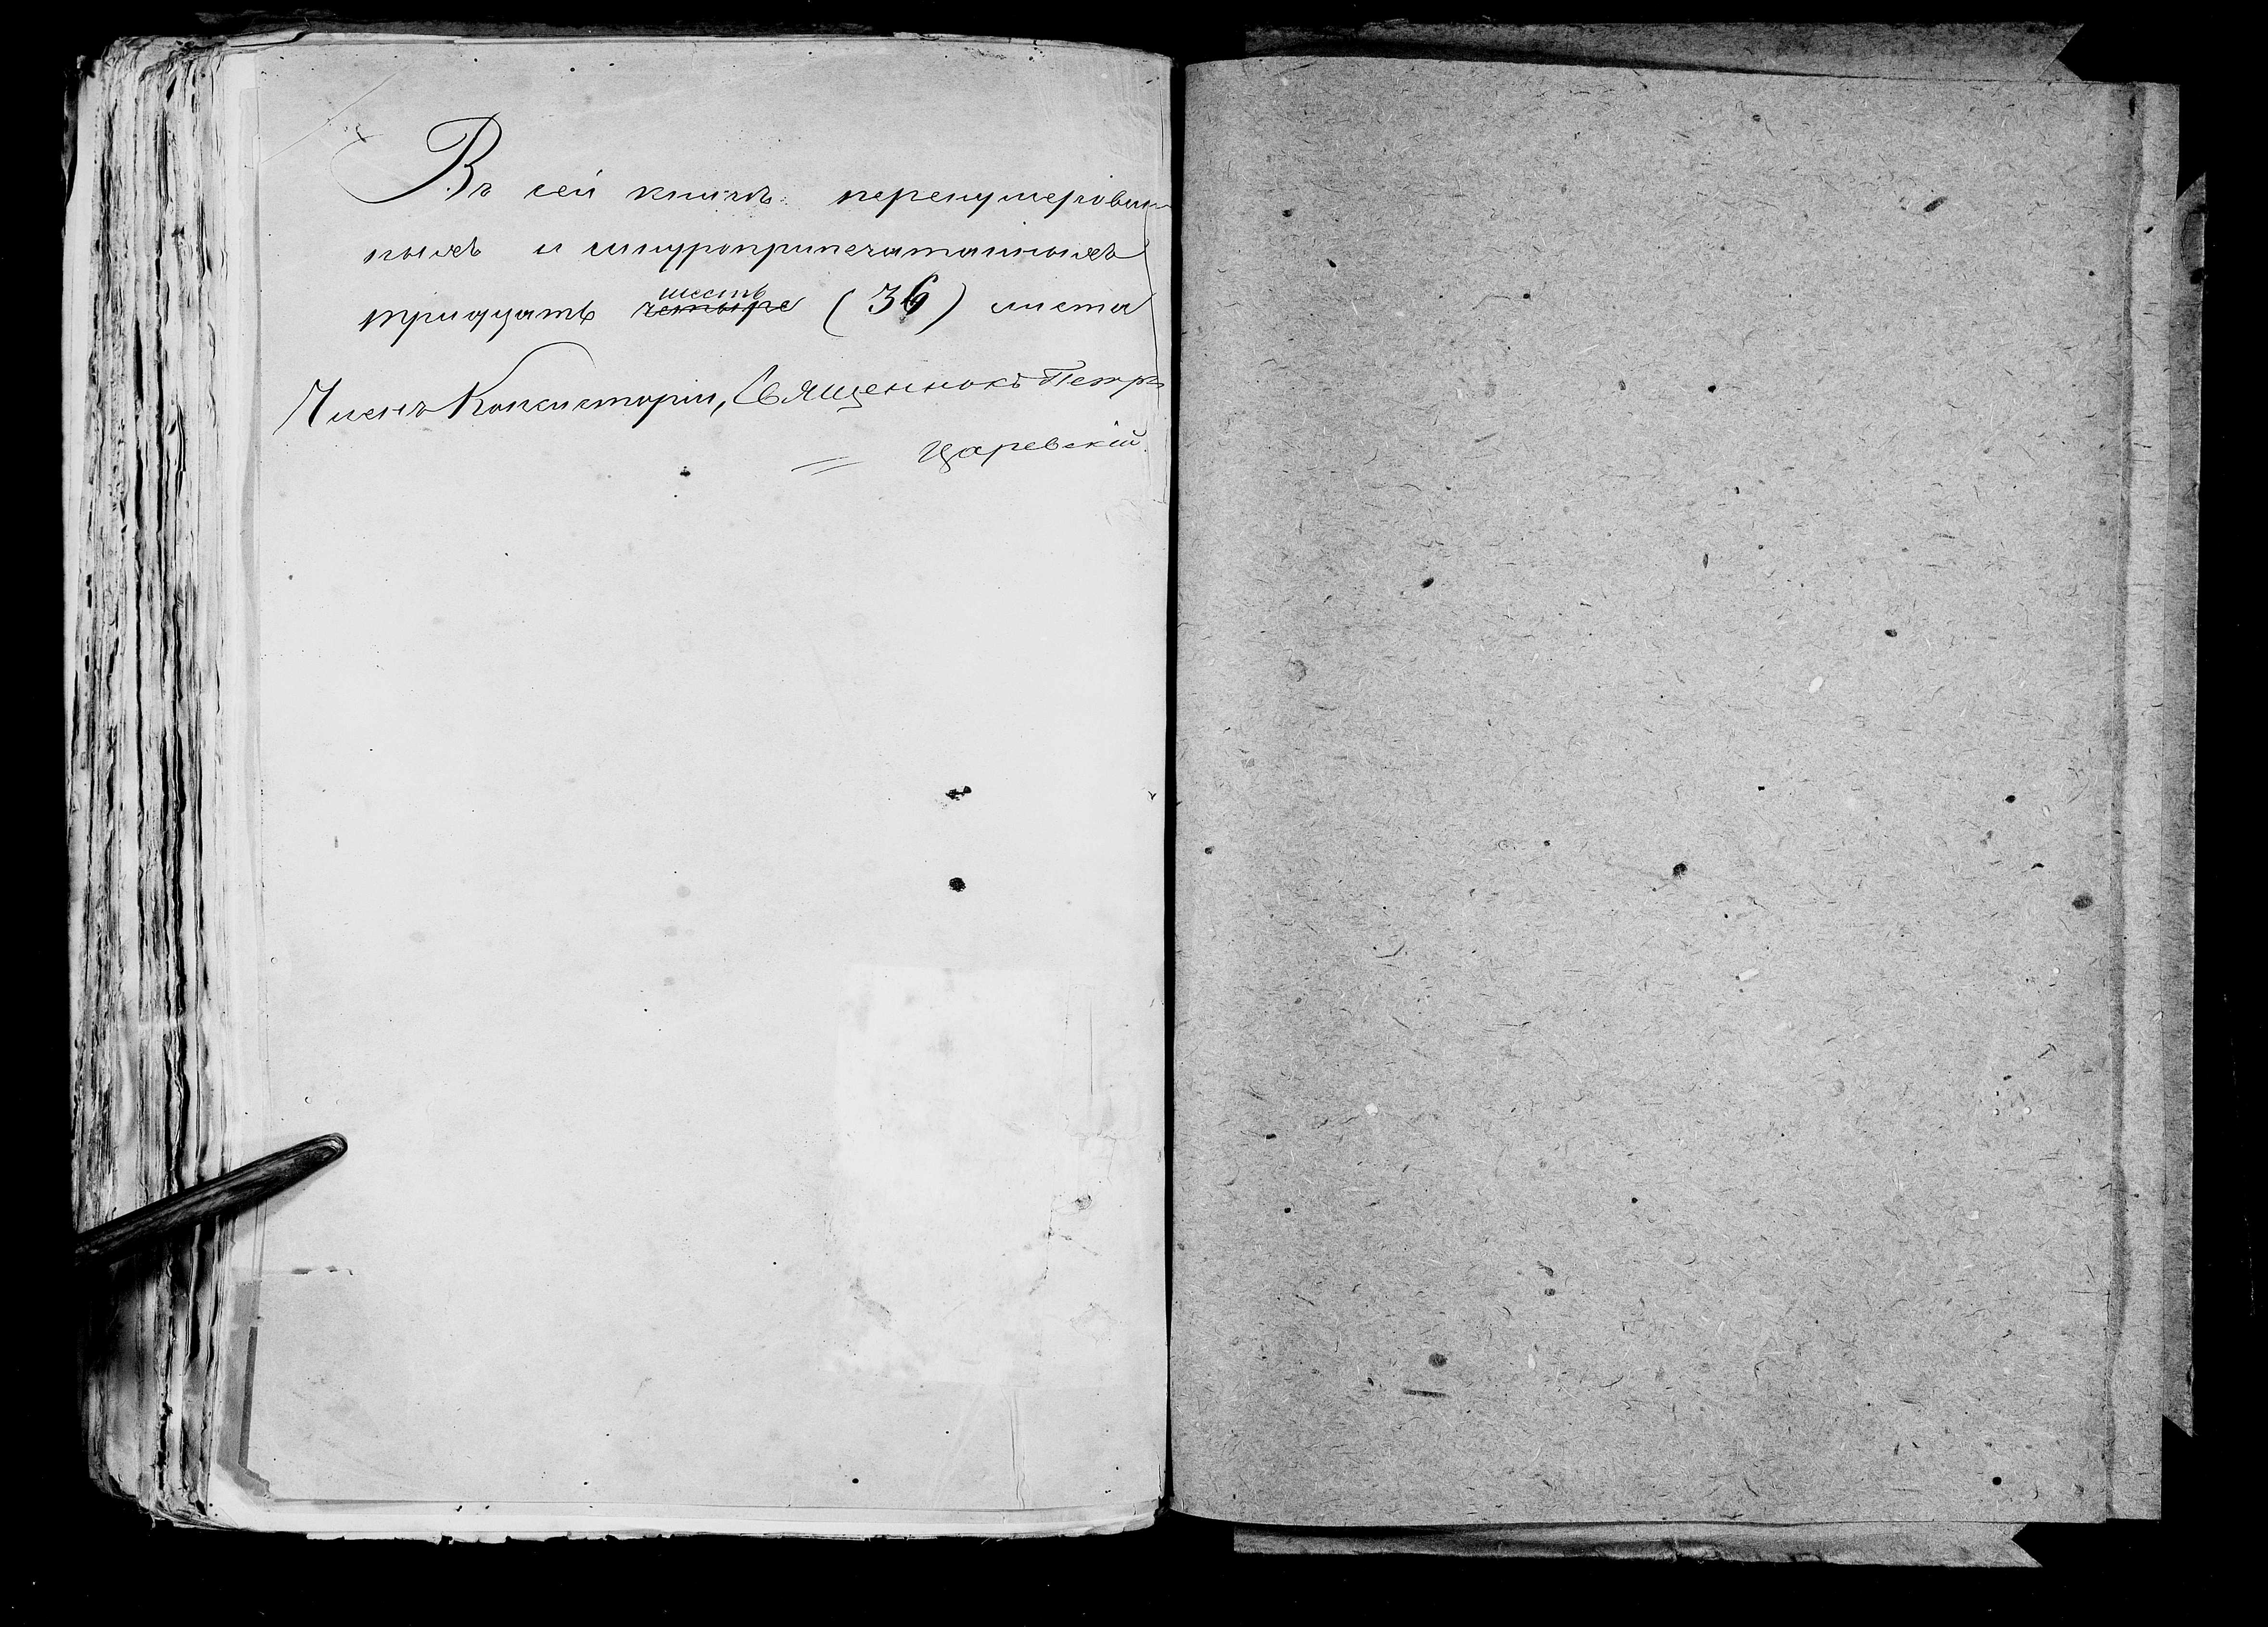 Въ сей книгѣ перенумерован-
ныхъ и шнуроприпечатанныхъ
шесть
тридцать четыре (36) листа
Членъ Консисторіи, Священникъ Петръ
Царевскій